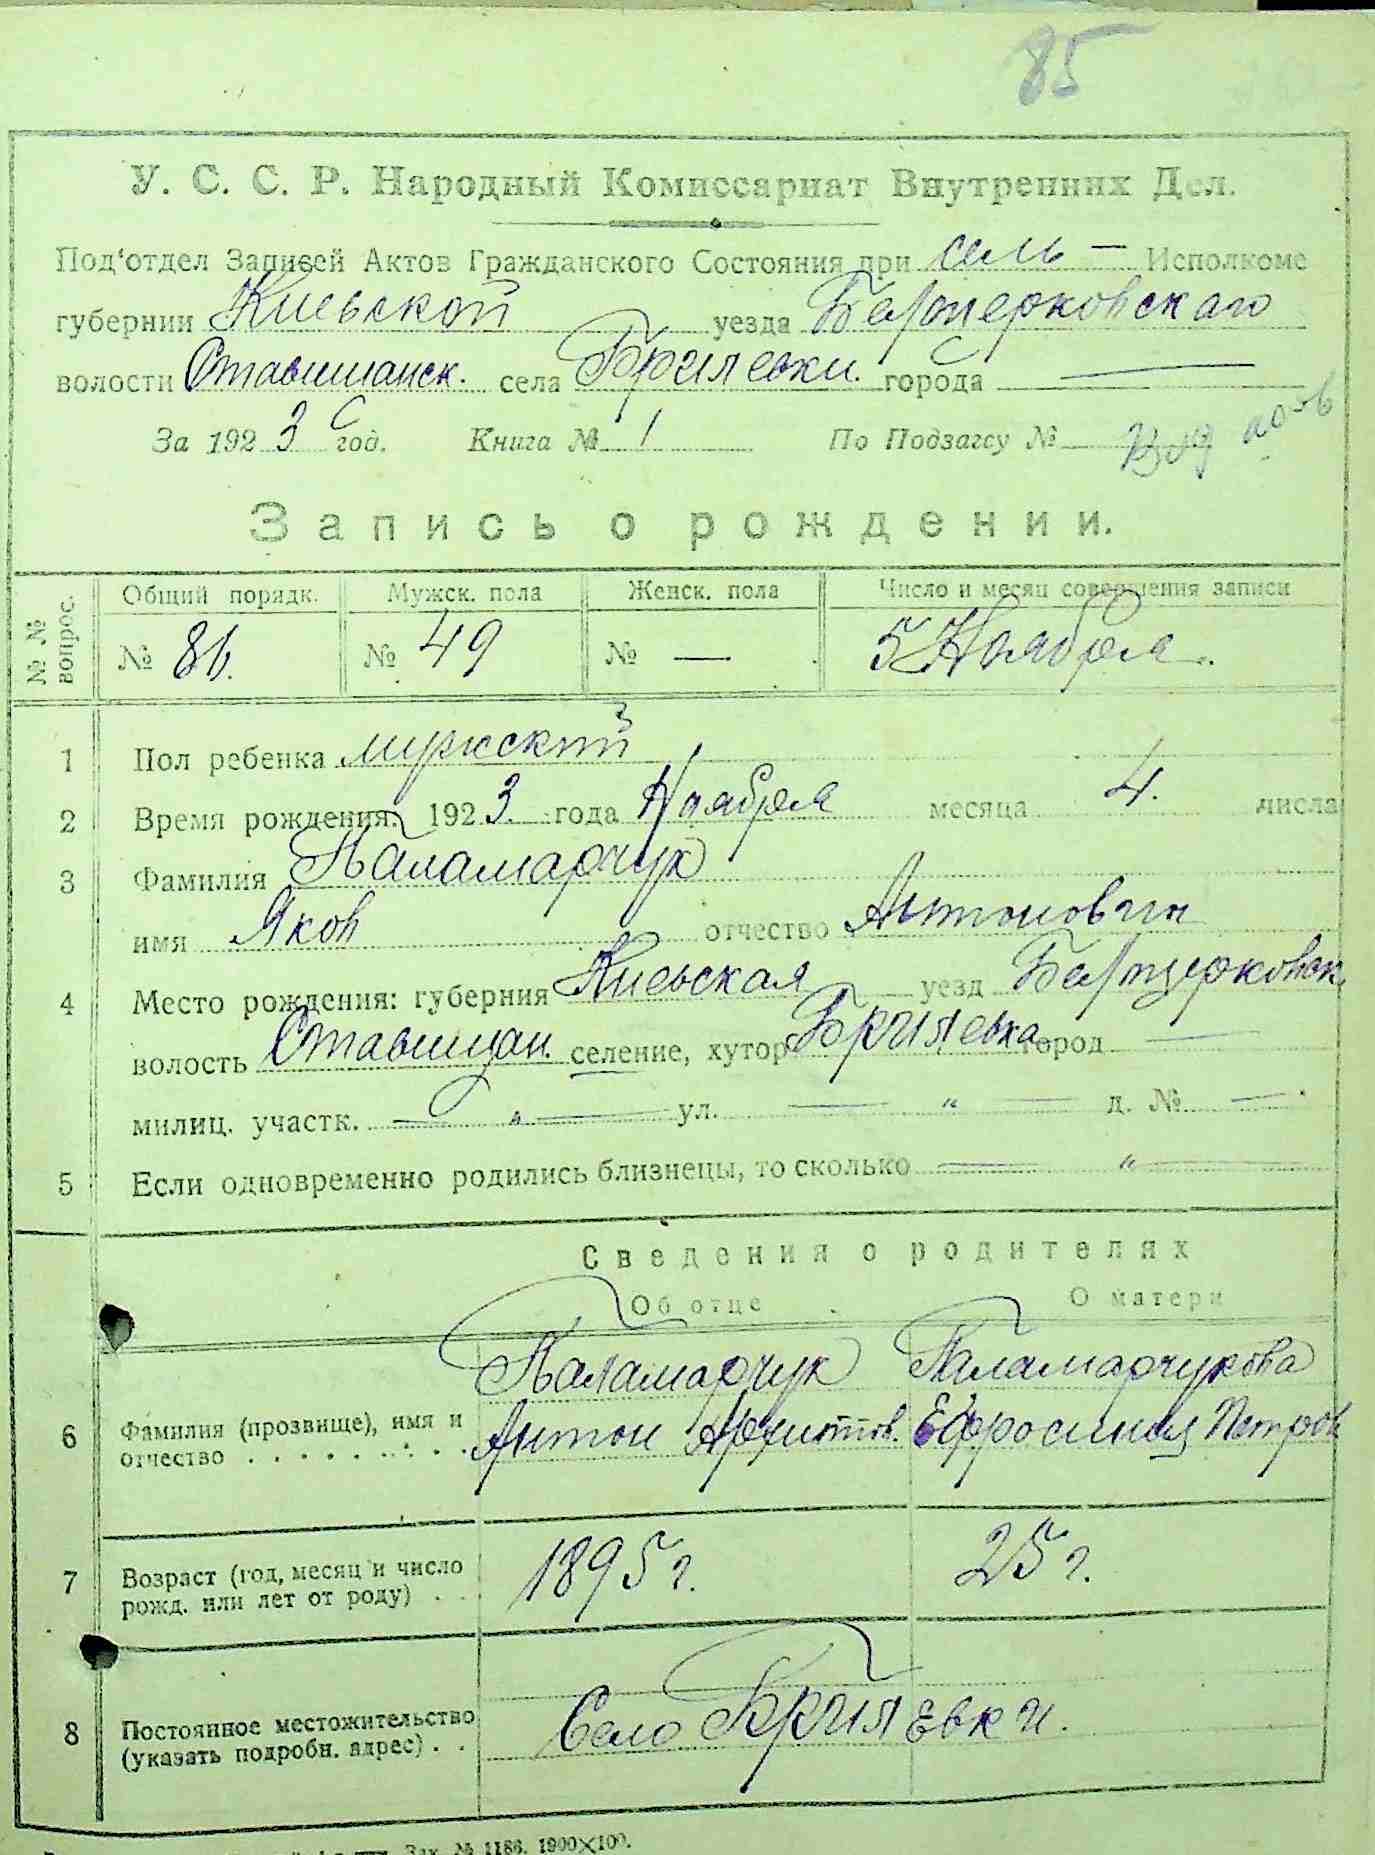 85
У. С. С. Р. Народный Комиссариат Внутренних Дел.
Под'отдел Записей Актов Гражданского Состояния при сель- Исполкоме
губернии Киевской уезда Белоцерковскаго
волости Ставищанск. села Брилевки. города —
За 1923 год. Книга № 1 По Подзагсу №
Запись о рождении.
№№ вопрос. Общий порядк. Мужск. пола Женск. пола Число и месяц совершения записи
№ 86. № 49 № — 5 Ноября.
1 Пол ребенка мужский
2 Время рождения: 1923. года Ноября месяца 4. числа
3 Фамилия Паламарчук
имя Яков отчество Антонович
4 Место рождения: губерния Киевская уезд Белоцерковск.
волость Ставищан. селение, хутор Брилевка город —
милиц. участк. — „ — ул. — „ — д. № —
5 Если одновременно родились близнецы, то сколько — „ —
Сведения о родителях
Об отце О матери
Паламарчук Паламарчукова
6 Фамилия (прозвище), имя и отчество . . . . . . . . . Антон Ефросиния Петров
7 Возраст (год, месяц и число рожд. или лет от роду) . . 1895 г. 25 г.
8 Постоянное местожительство (указать подробн. адрес) . . Село Брилевки.
Зак. № 1186. 1900×100.